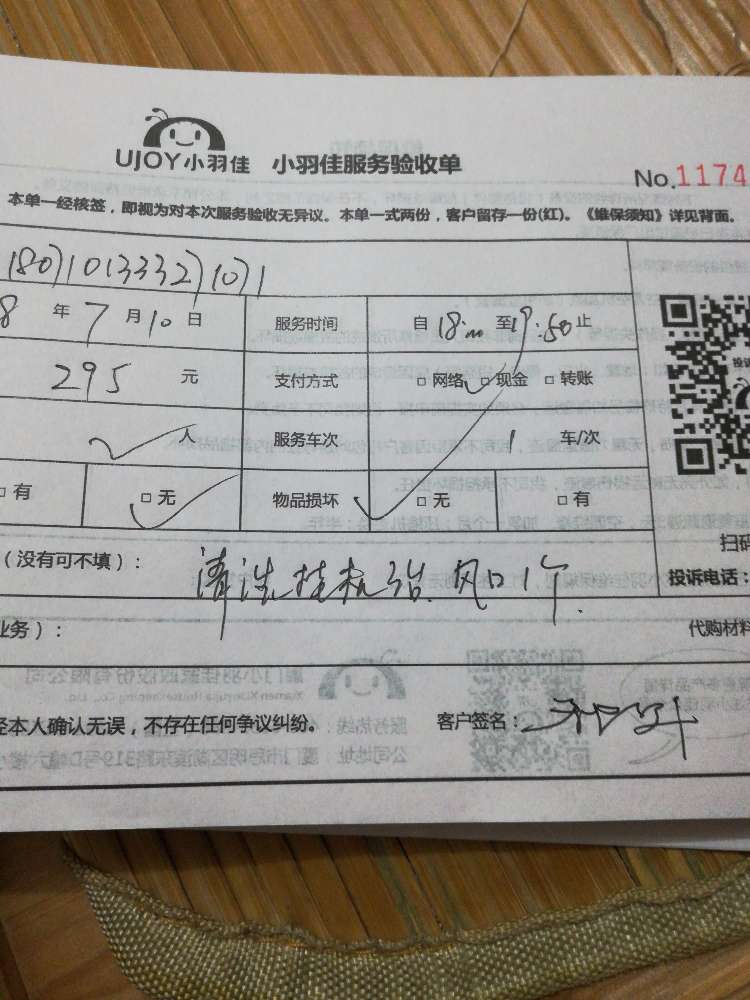 UJOY小羽佳 小羽佳服务验收单
No.1174
本单一经核签，即视为对本次服务验收无异议。本单一式两份，客户留存一份(红)。《维保须知》详见背面。
8年7月10日 服务时间 自18:00至19:50止
295元 支付方式 □网络 □现金 □转账
人 服务车次 1车/次
□有 □无 物品损坏 □无 □有
（没有可不填）： 清洗挂机3台.风口1个.
扫码
投诉电话：
业务）： 代购材料
经本人确认无误，不存在任何争议纠纷。 客户签名：